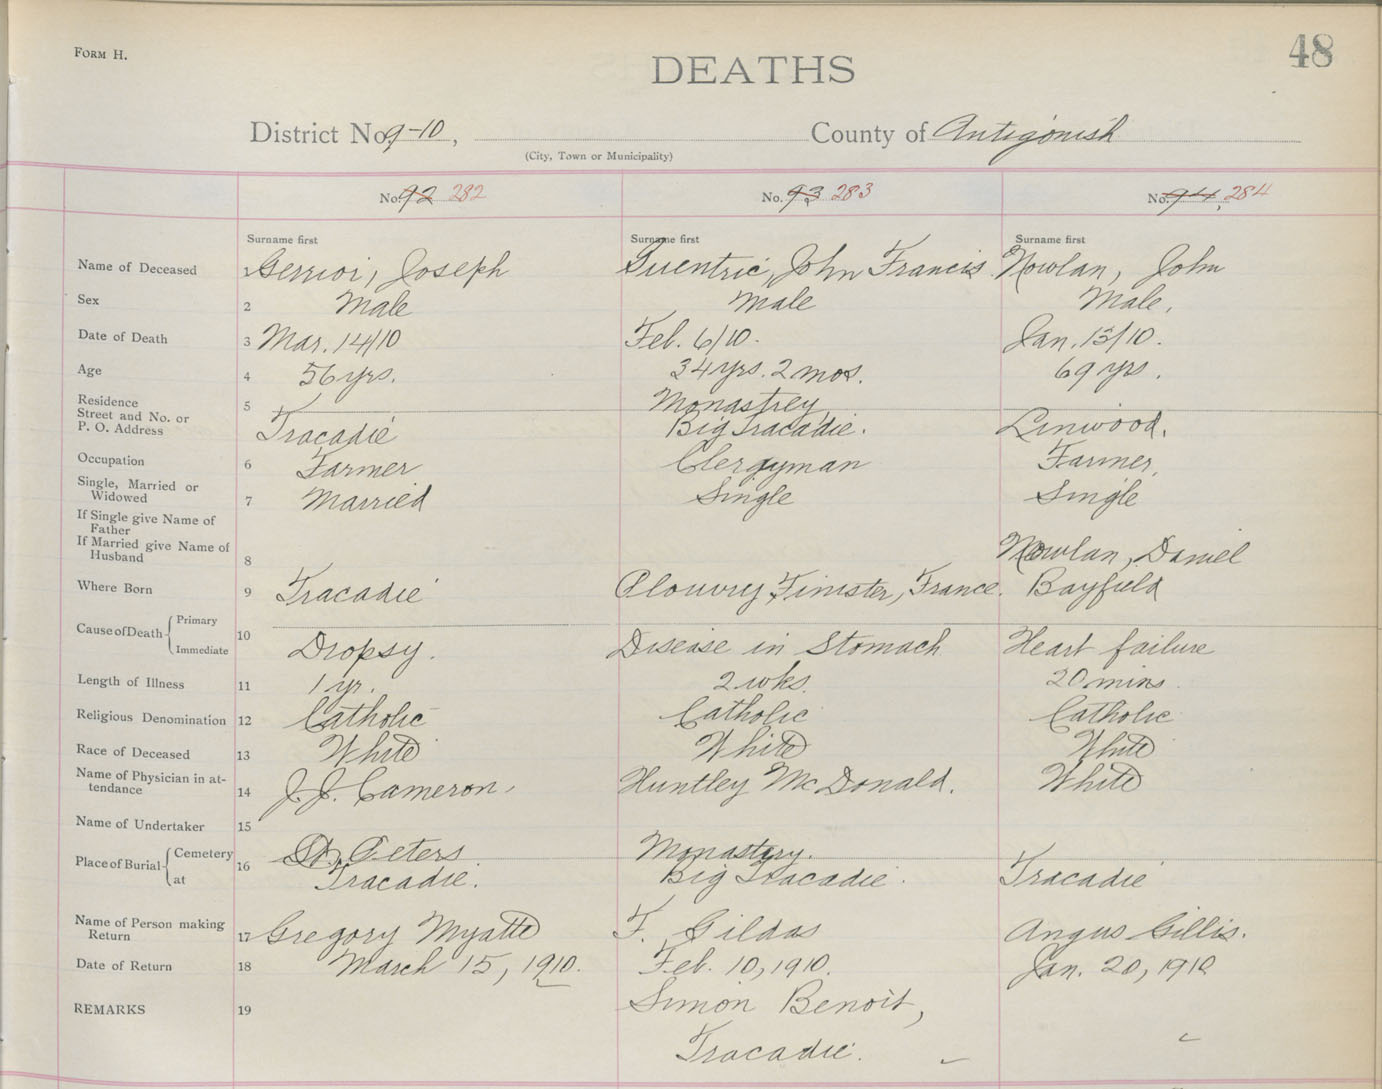 FORM H.
48
DEATHS
District No. 9-10, County of Antigonish
(City, Town or Municipality)
No. 92 282 No. 93 283 No. 94 284
Surname first Surname first Surname first
Name of Deceased 1 Gerrior, Joseph Guentric, John Francis Nowlan, John
Sex 2 Male Male Male.
Date of Death 3 Mar. 14/10 Feb. 6/10. Jan. 13/10.
Age 4 56 yrs. 34 yrs. 2 mos. 69 yrs.
Residence 5 Monastrey
Street and No. or
P. O. Address Tracadie Big Tracadie. Linwood.
Occupation 6 Farmer Clergyman Farmer.
Single, Married or
Widowed 7 Married Single Single
If Single give Name of
Father
If Married give Name of
Husband 8 Nowlan, Daniel
Where Born 9 Tracadie Plouvry, Finister, France. Bayfield
Cause of Death Primary
Immediate 10 Dropsy. Disease in Stomach Heart failure
Length of Illness 11 1 yr. 2 wks. 20 mins.
Religious Denomination 12 Catholic Catholic Catholic
Race of Deceased 13 White White White
Name of Physician in at-
tendance 14 J. J. Cameron. Huntley McDonald. White
Name of Undertaker 15
Place of Burial Cemetery St. Peters Monastery.
at 16 Tracadie. Big Tracadie. Tracadie
Name of Person making
Return 17 Gregory Myatte F. Gildas Angus Gillis.
Date of Return 18 March 15, 1910. Feb. 10, 1910. Jan. 20, 1910
REMARKS 19 Simon Benoit,
Tracadie.